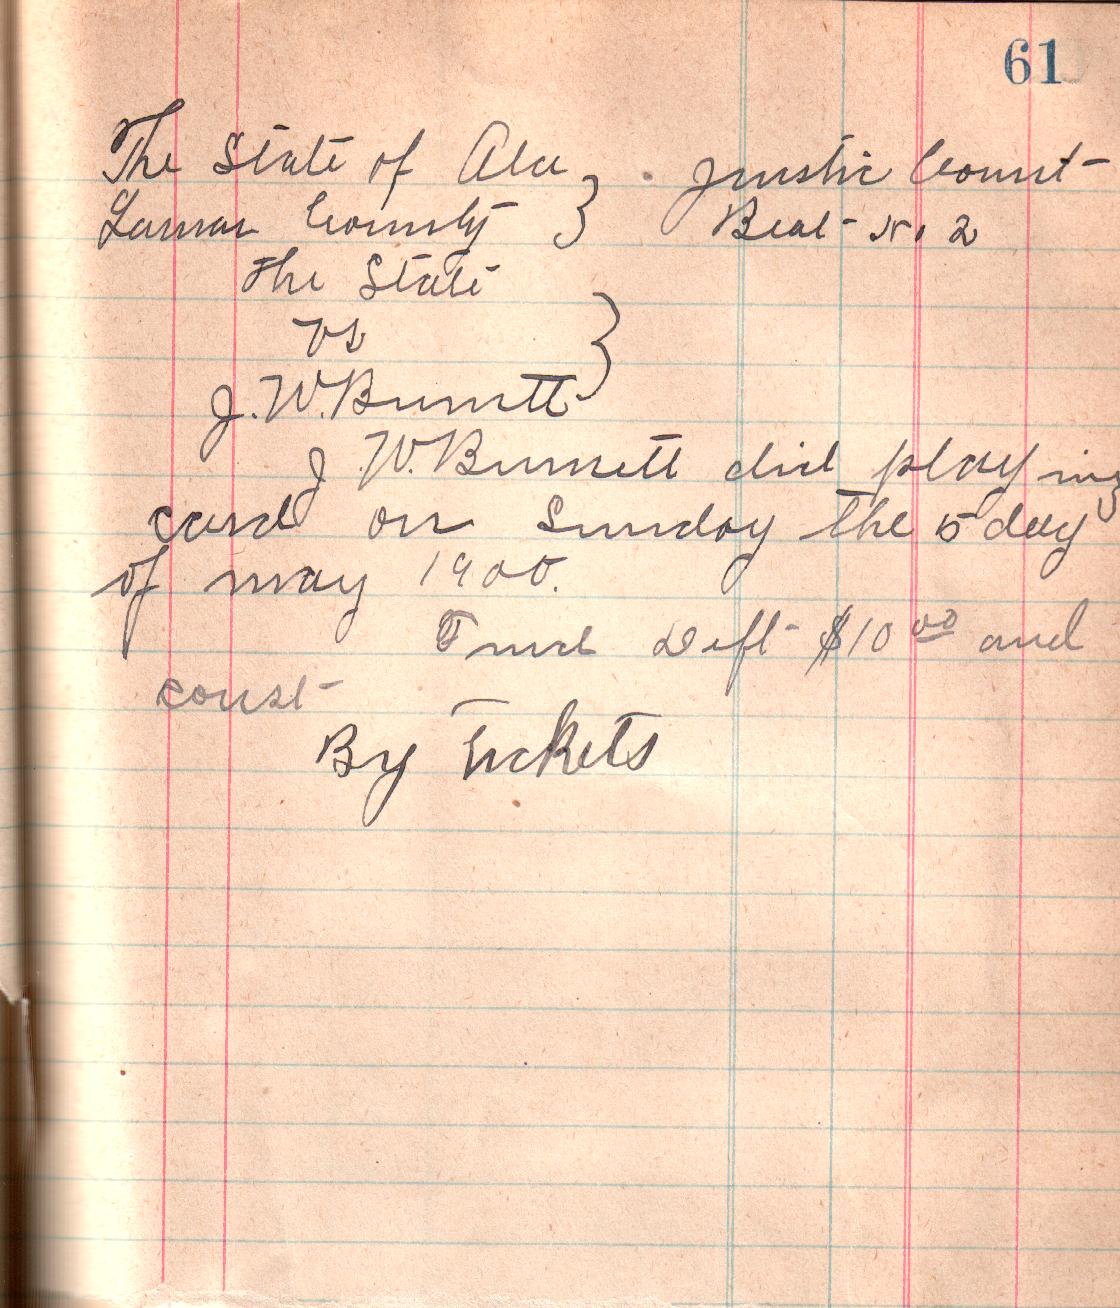 61
The State of Ala } Justic Court
Lamar County } Beat No 2
The State
vs }
J. W. Burnett
J. W. Burnett did playing
card on Sunday the 5 day
of may 1900.
Fined Deft $10 00 and
coust
By Tickets